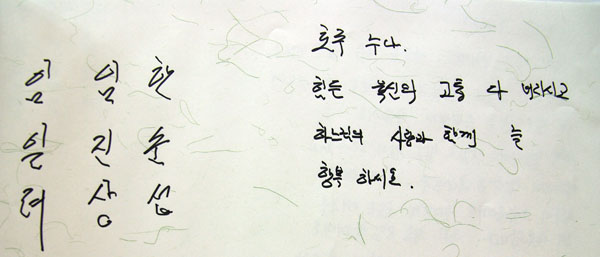 한순섭
임진상
호주 누나.
힘든 육신의 고통 다 버리시고
하느님의 사랑과 함께 늘
행복 하시오.